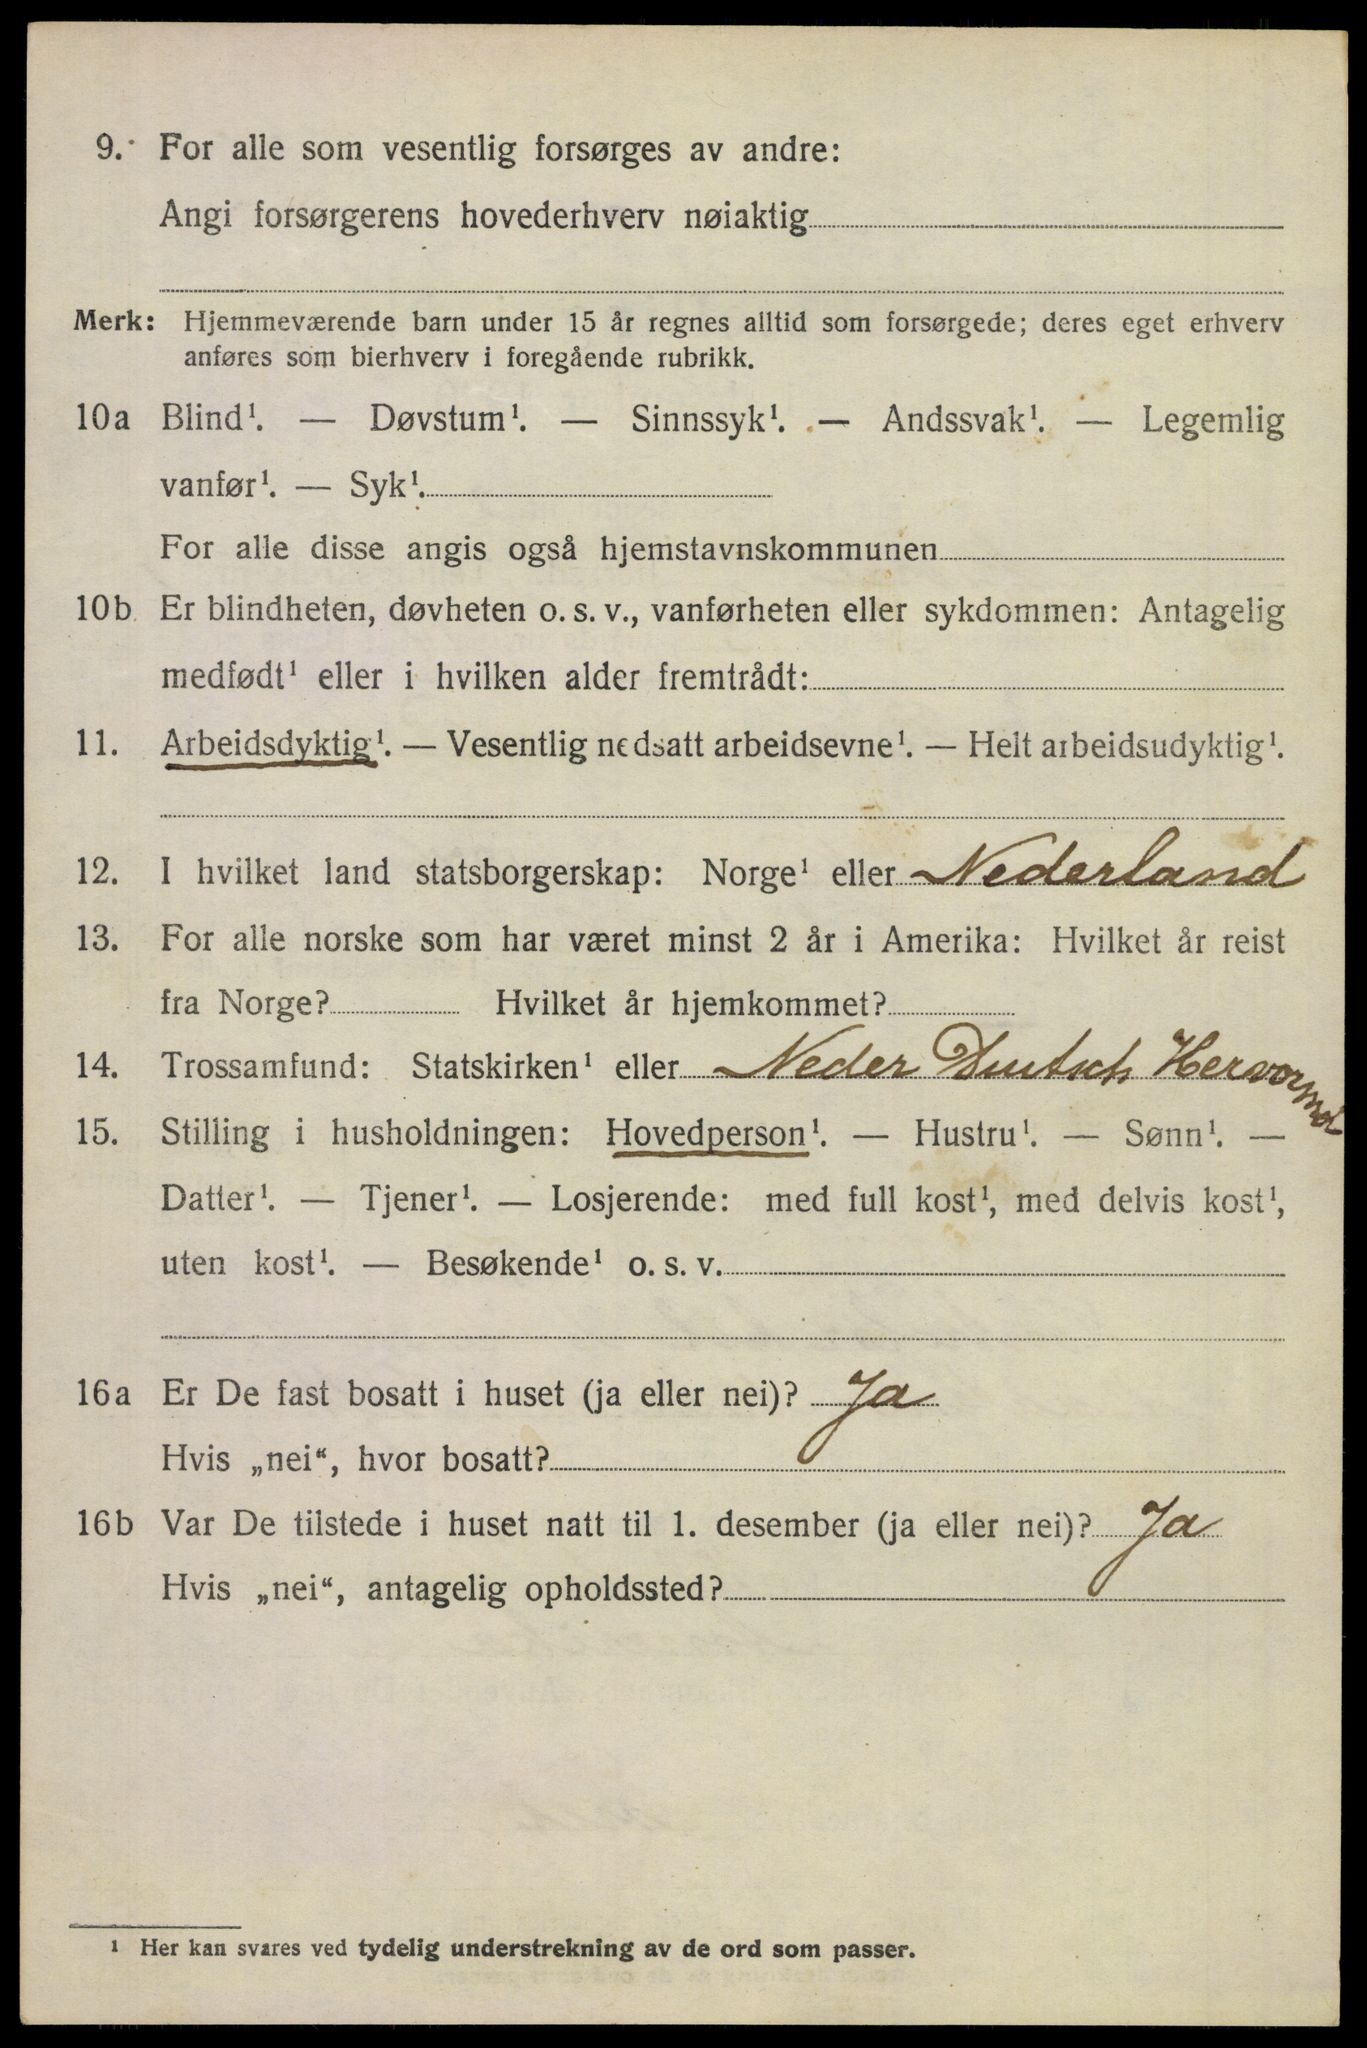 9. For alle som vesentlig forsørges av andre:
Angi forsørgerens hovederhverv nøiaktig
Merk: Hjemmeværende barn under 15 år regnes alltid som forsørgede; deres eget erhverv
anføres som bierhverv i foregående rubrikk.
10a Blind¹. — Døvstum¹. — Sinnssyk¹. — Andssvak¹. — Legemlig
vanfør¹. — Syk¹.
For alle disse angis også hjemstavnskommunen
10b Er blindheten, døvheten o. s. v., vanførheten eller sykdommen: Antagelig
medfødt¹ eller i hvilken alder fremtrådt:
11. Arbeidsdyktig¹. — Vesentlig nedsatt arbeidsevne¹. — Helt arbeidsudyktig¹.
12. I hvilket land statsborgerskap: Norge¹ eller Nederland
13. For alle norske som har været minst 2 år i Amerika: Hvilket år reist
fra Norge? Hvilket år hjemkommet?
14. Trossamfund: Statskirken¹ eller Neder Duitsch Hervormd
15. Stilling i husholdningen: Hovedperson¹. — Hustru¹. — Sønn¹. —
Datter¹. — Tjener¹. — Losjerende: med full kost¹, med delvis kost¹,
uten kost¹. — Besøkende¹ o. s. v.
16a Er De fast bosatt i huset (ja eller nei)? Ja
Hvis „nei“, hvor bosatt?
16b Var De tilstede i huset natt til 1. desember (ja eller nei)? Ja
Hvis „nei“, antagelig opholdssted?
¹ Her kan svares ved tydelig understrekning av de ord som passer.